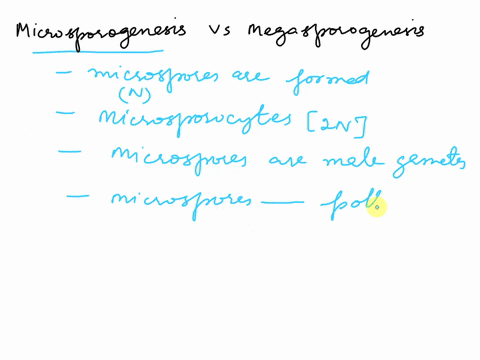 Microsporogenesis vs Megasporogenesis
- microspores are formed
(N)
- Microsporocytes [2N]
- Microspores are male gametes
- microspores — poll